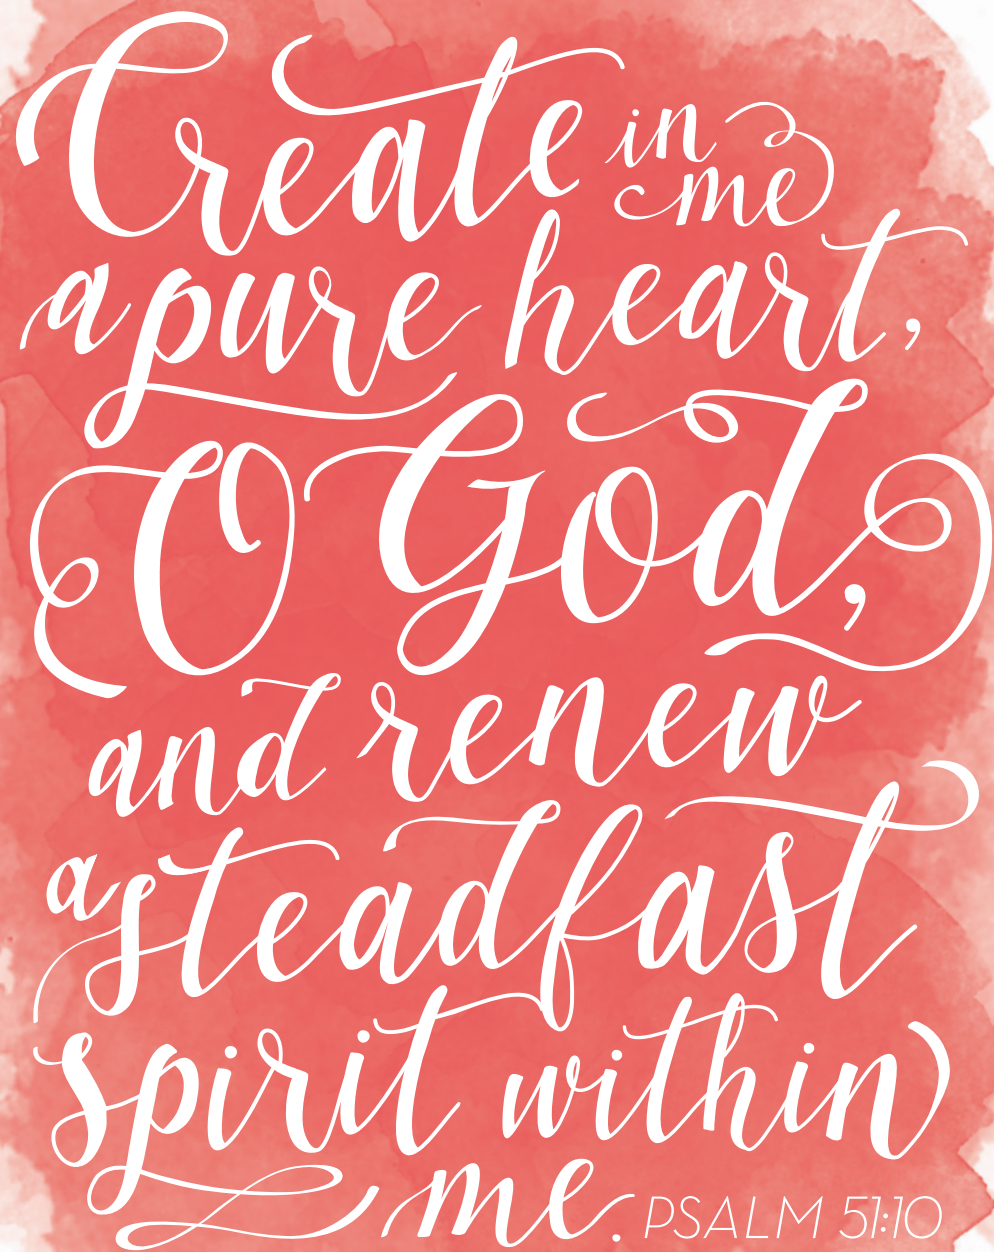 Create in me
a pure heart,
O God,
and renew
a steadfast
spirit within
me. PSALM 51:10